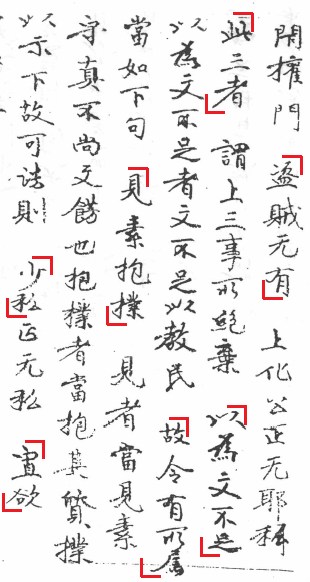 閇權門 盗賊无有 上化公正无耶私
此三者 謂上三事所絕棄 以為文不足
以為文不足者文不足以教民 故令有所属
當如下句 見素抱樸 見者當見素
守真不尚文餝也抱樸者當抱其質樸
以示下故可法則 少私正无私 寡欲